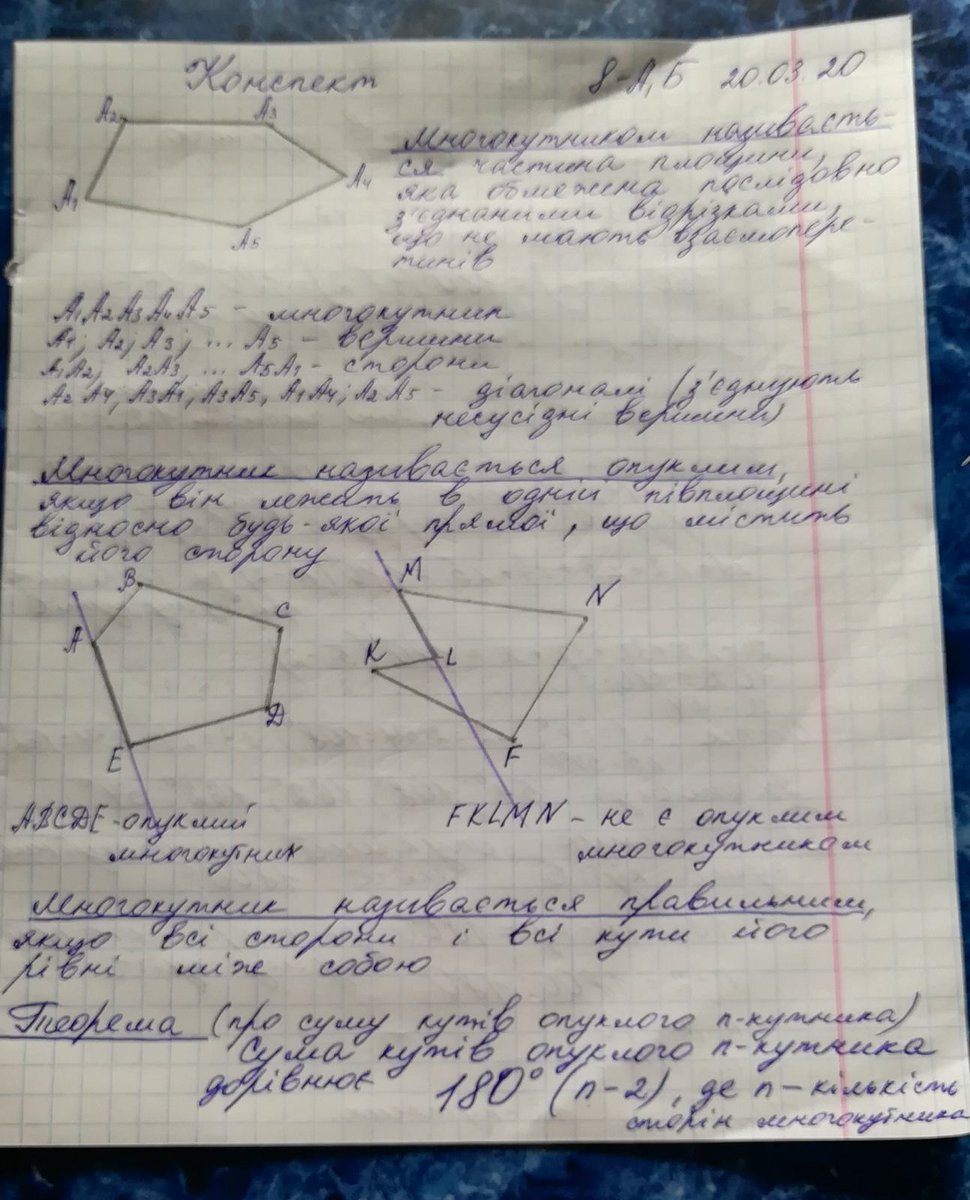 Конспект 8-А,Б 20.03.20
A2 A3
A1 A4
A5
Многокутником називаєть-
ся частина площини,
яка обмежена послідовно
з'єднаними відрізками,
що не мають взаємопере-
тинів
A1A2A3A4A5 - многокутник
A1; A2; A3; ... A5 - вершини
A1A2; A2A3, ... A5A1 - сторони
A2A4; A3A1; A3A5, A1A4; A2A5 - діагоналі (з'єднують
несусідні вершини)
Многокутник називається опуклим,
якщо він лежать в одній півплощині
відносно будь-якої прямої, що містить
його сторону
B C
A
D
E
M N
K L
F
ABCDE - опуклий
многокутник
FKLMN - не є опуклим
многокутникам
Многокутник називається правильним,
якщо всі сторони і всі кути його
рівні між собою
Теорема (про суму кутів опуклого n-кутника)
Сума кутів опуклого n-кутника
дорівнює 180° (n-2), де n - кількість
сторін многокутника